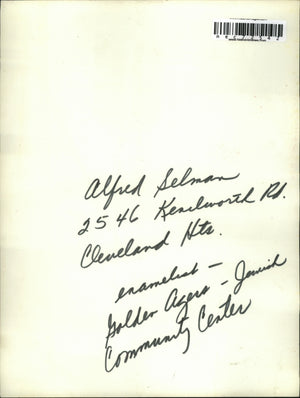 Alfred Selman
2546 Kenilworth Rd.
Cleveland Hts.
enamelist —
Golden Agers - Jewish
Community Center